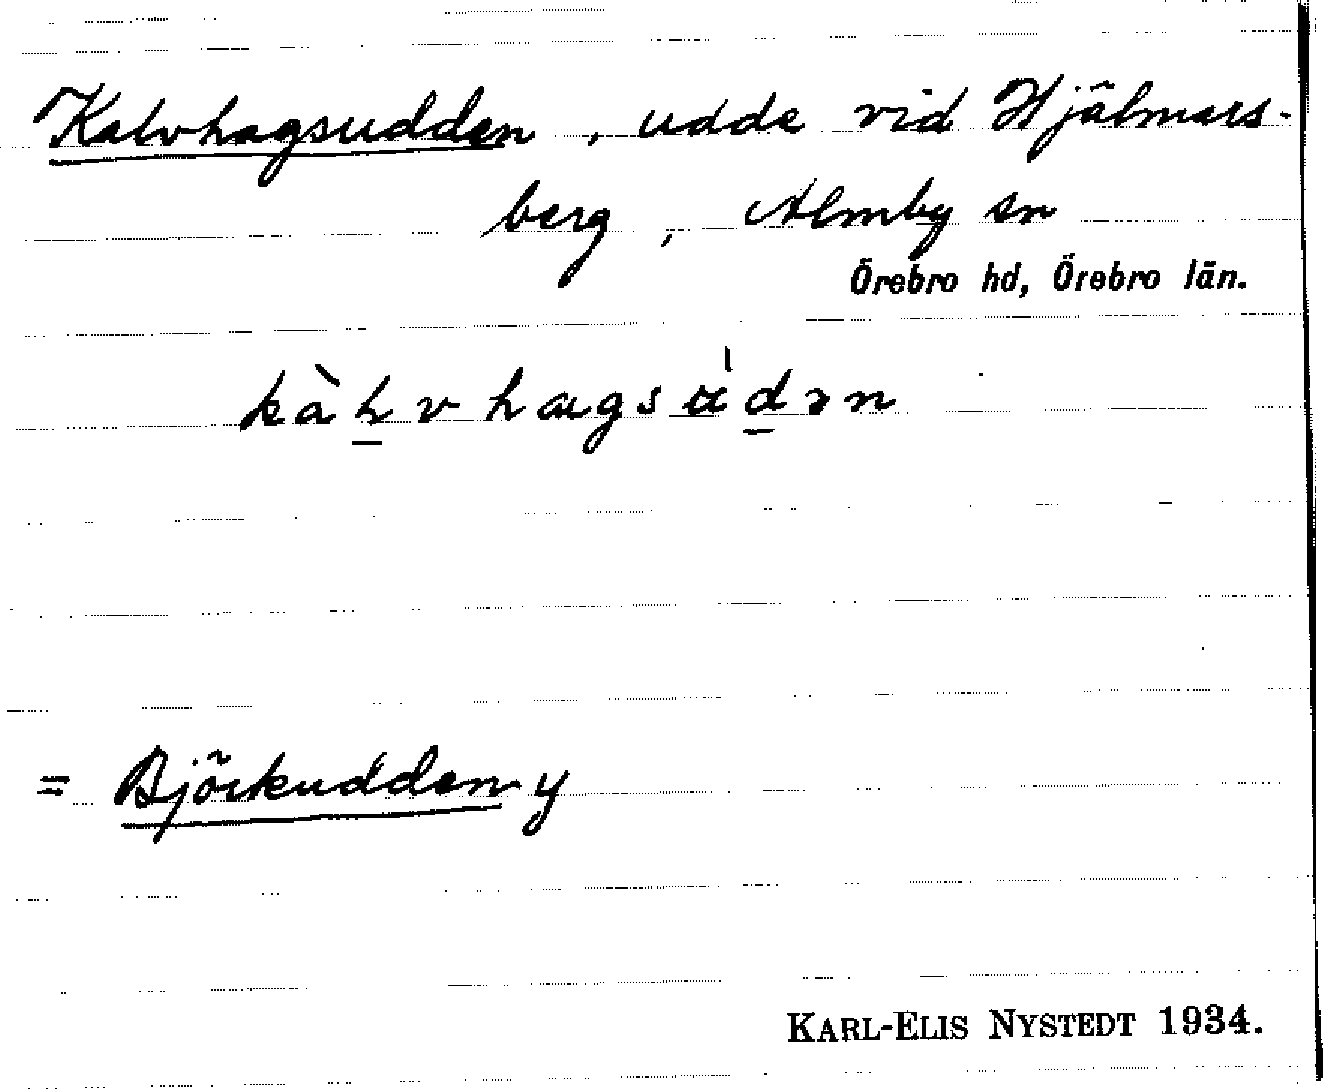 Kalvhagsudden, udde vid Hjälmars-
berg, Almby sn
Örebro hd, Örebro län.
= Björkudden y
KARL-ELIS NYSTEDT 1934.